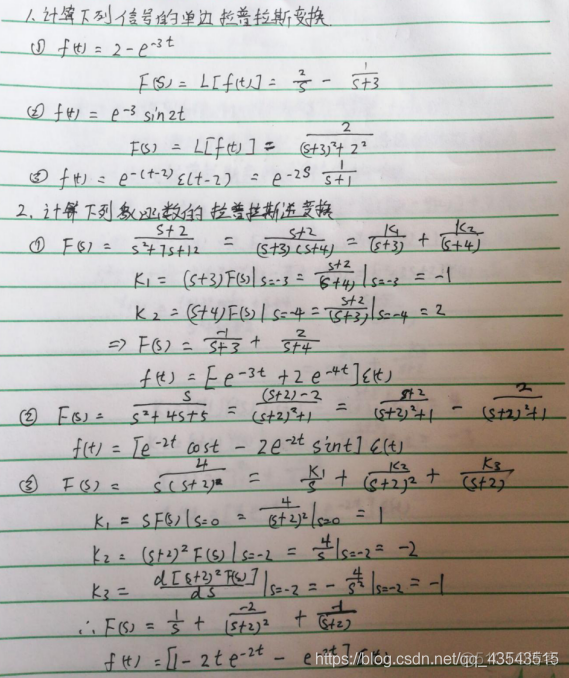 1.计算下列信号的单边拉普拉斯变换
① f(t) = 2-e^{-3t}
F(S) = L[f(t)] = 2/s - 1/(s+3)
② f(t) = e^{-3} sin2t
F(s) = L[f(t)] = 2/((s+3)²+2²)
③ f(t) = e^{-(t-2)} ε(t-2) = e^{-2S} 1/(s+1)
2.计算下列象函数的拉普拉斯逆变换
① F(s) = (s+2)/(s²+7s+12) = (s+2)/((s+3)(s+4)) = K₁/(s+3) + K₂/(s+4)
K₁ = (s+3)F(s)|s=-3 = (s+2)/(s+4)|s=-3 = -1
K₂ = (s+4)F(s)|s=-4 = (s+2)/(s+3)|s=-4 = 2
⇒ F(s) = -1/(s+3) + 2/(s+4)
f(t) = [-e^{-3t} + 2e^{-4t}]ε(t)
② F(s) = s/(s²+4s+5) = ((s+2)-2)/((s+2)²+1) = (s+2)/((s+2)²+1) - 2/((s+2)²+1)
f(t) = [e^{-2t} cost - 2e^{-2t} sint] ε(t)
③ F(s) = 4/(s(s+2)²) = K₁/s + K₂/(s+2)² + K₃/(s+2)
K₁ = SF(s)|s=0 = 4/(s+2)²|s=0 = 1
K₂ = (s+2)²F(s)|s=-2 = 4/s|s=-2 = -2
K₃ = d[(s+2)²F(s)]/ds|s=-2 = -4/s²|s=-2 = -1
∴ F(s) = 1/s + -2/(s+2)² + -1/(s+2)
f(t) = [1-2te^{-2t} - e^{-2t}]
https://blog.csdn.net/qq_43543515